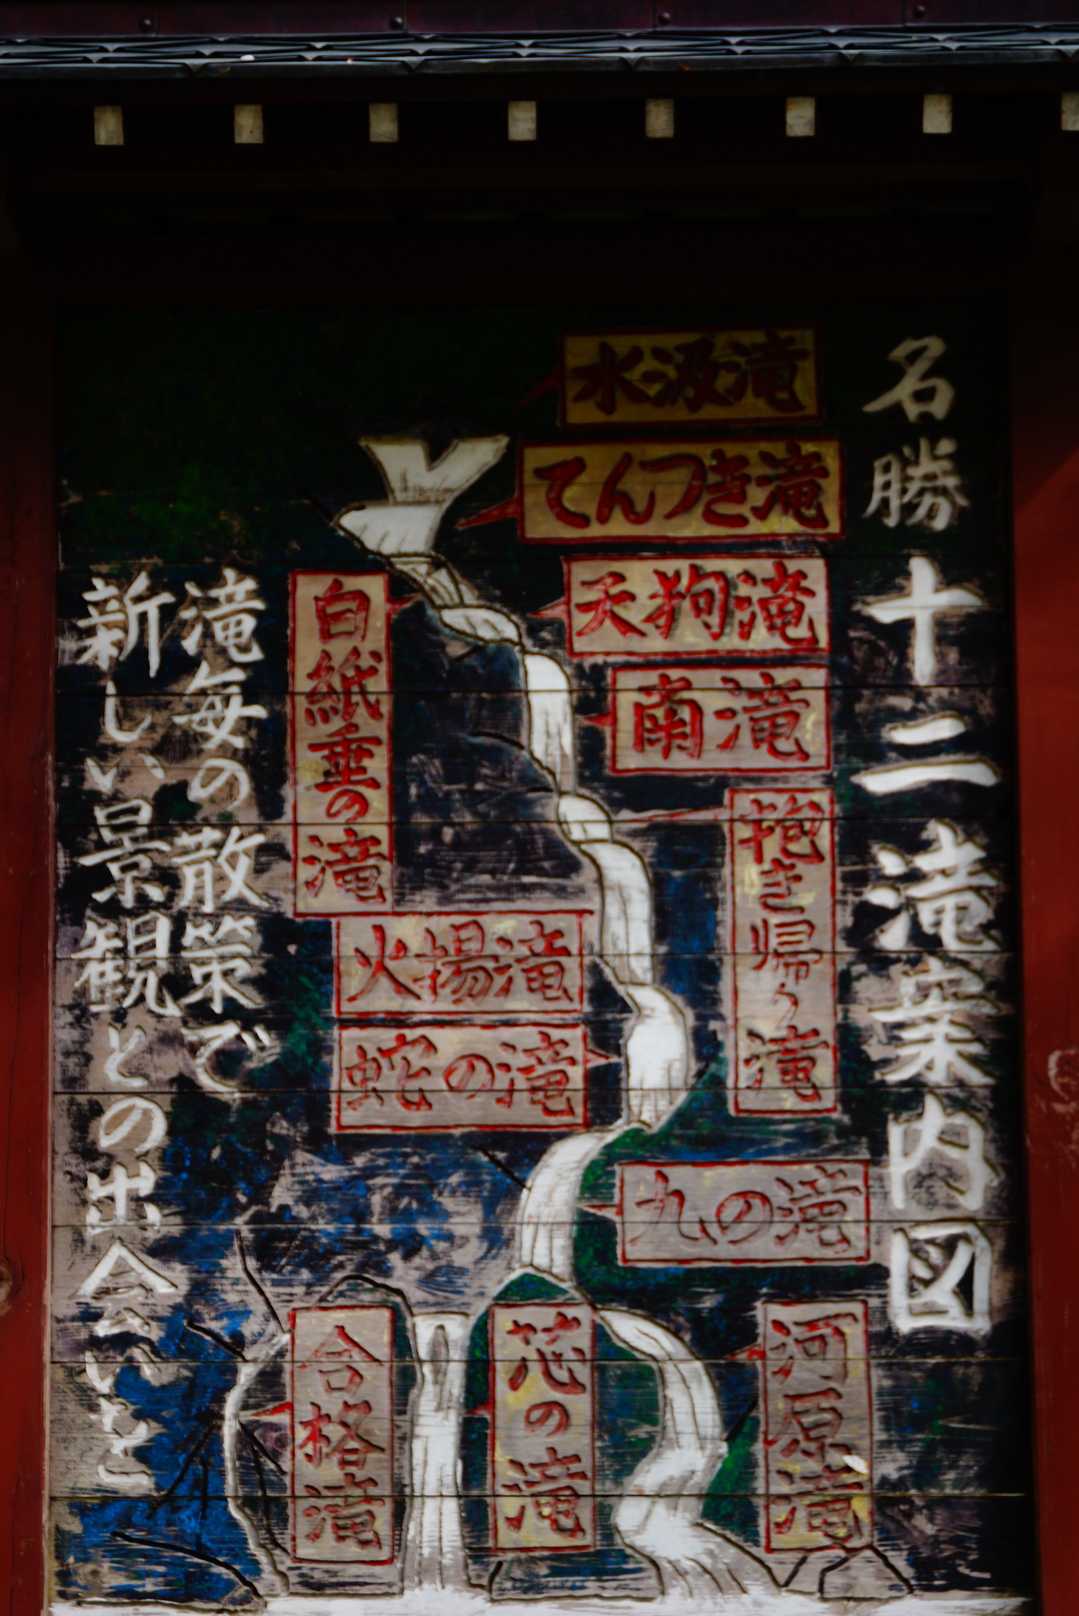 名勝十二滝案内図
水汲滝
てんつき滝
天狗滝
南滝
抱き帰り滝
白紙垂の滝
火揚滝
蛇の滝
九の滝
河原滝
芯の滝
合格滝
滝毎の散策で
新しい景観との出会いを